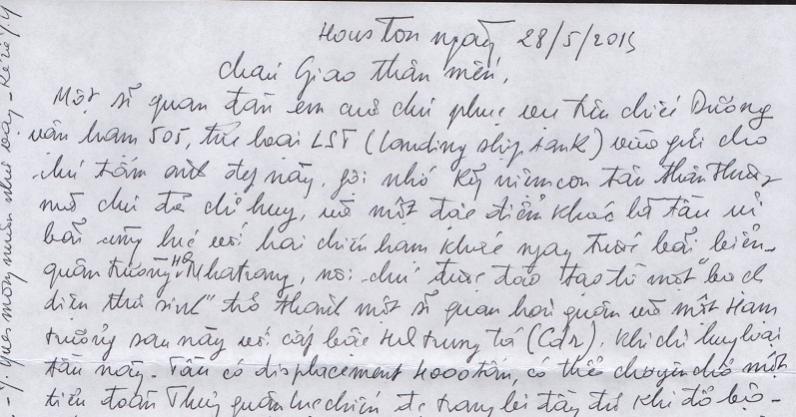 Houston ngày 28/5/2015
cháu Giao thân mến,
Một sĩ quan đàn em của chú phục vụ trên chiếc Dương
vận hạm 505, thuộc loại LST (Landing ship tank) vừa gửi cho
chú tấm ảnh đẹp này, gợi nhớ kỷ niệm con tàu thân thương
mà chú đã chỉ huy, và một đặc điểm khác là tàu ủi
bãi cùng lúc với hai chiến hạm khác ngay trước bãi biển
quân trường HQ Nhatrang, nơi chú được đào tạo từ một "bạch
diện thư sinh" trở thành một sĩ quan hải quân và một Hạm
trưởng sau này với cấp bậc HQ trung tá (Cdr), khi chỉ huy loại
tàu này. Tàu có displacement 4000 tấn, có thể chuyên chở một
tiểu đoàn Thủy quân lục chiến được trang bị đầy đủ khi đổ bộ-